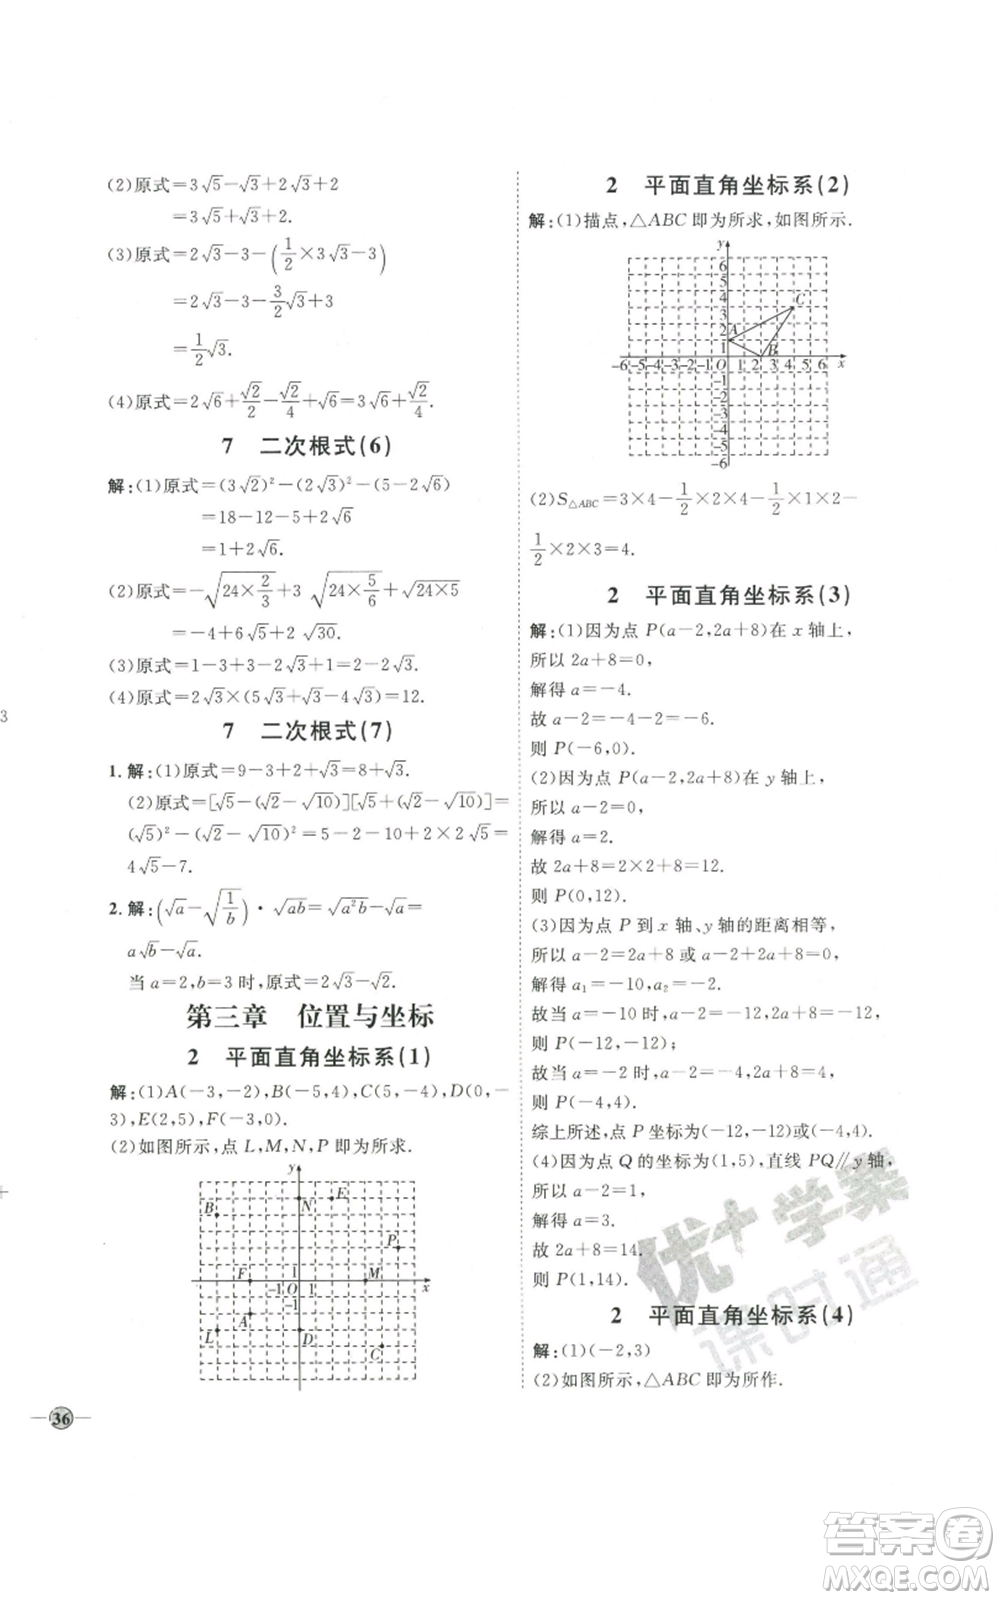 (2)原式=3√5-√3+2√3+2
=3√5+√3+2.
(3)原式=2√3-3-(1/2×3√3-3)
=2√3-3-3/2√3+3
=1/2√3.
(4)原式=2√6+√2/2-√2/4+√6=3√6+√2/4.
7 二次根式(6)
解:(1)原式=(3√2)²-(2√3)²-(5-2√6)
=18-12-5+2√6
=1+2√6.
(2)原式=-√(24×2/3)+3√(24×5/6)+√(24×5)
=-4+6√5+2√30.
(3)原式=1-3+3-2√3=1-2√3.
(4)原式=2√3×(5√3+√3-4√3)=12.
7 二次根式(7)
1. 解:(1)原式=9-3+2+√3=8+√3.
(2)原式=[√5-(√2-√10)][√5+(√2-√10)]=
(√5)²-(√2-√10)²=5-2-10+2×2√5=
4√5-7.
2. 解:(√a-√(1/b))·√ab=√(a²b)-√a=
a√b-√a.
当a=2,b=3时,原式=2√3-√2.
第三章 位置与坐标
2 平面直角坐标系(1)
解:(1)A(-3,-2),B(-5,4),C(5,-4),D(0,-
3),E(2,5),F(-3,0).
(2)如图所示,点L,M,N,P即为所求.
y
N E
B
P
F 1 M
-1 O 1 x
-1
A
L D
C
36
3
2 平面直角坐标系(2)
解:(1)描点,△ABC即为所求,如图所示.
y
6
5
4
3 C
2 A
1 B
-6-5-4-3-2-1 O 1 2 3 4 5 6 x
-1
-2
-3
-4
-5
-6
(2)S△ABC=3×4-1/2×2×4-1/2×1×2-
1/2×2×3=4.
2 平面直角坐标系(3)
解:(1)因为点P(a-2,2a+8)在x轴上,
所以2a+8=0,
解得a=-4.
故a-2=-4-2=-6.
则P(-6,0).
(2)因为点P(a-2,2a+8)在y轴上,
所以a-2=0,
解得a=2.
故2a+8=2×2+8=12.
则P(0,12).
(3)因为点P到x轴、y轴的距离相等,
所以a-2=2a+8或a-2+2a+8=0.
解得a₁=-10,a₂=-2.
故当a=-10时,a-2=-12,2a+8=-12,
则P(-12,-12);
故当a=-2时,a-2=-4,2a+8=4,
则P(-4,4).
综上所述,点P坐标为(-12,-12)或(-4,4).
(4)因为点Q的坐标为(1,5),直线PQ∥y轴,
所以a-2=1,
解得a=3.
故2a+8=14.
则P(1,14).
2 平面直角坐标系(4)
解:(1)(-2,3)
(2)如图所示,△ABC即为所作.
优+学案
课时通
答案卷
MXQE.COM